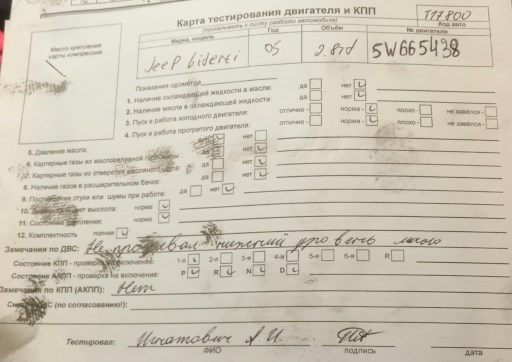 Карта тестирования двигателя и КПП
(прикалывать к листу разборки автомобиля)
T17800
Код авто
Место крепления карты компрессии
Марка, модель Год Объём № двигателя
Jeep 05 2.8td 5W665438
Показания одометра
1. Наличие охлаждающей жидкости в масле: да нет
2. Наличие масла в охлаждающей жидкости: да нет
3. Пуск и работа холодного двигателя: отлично норма плохо не завёлся
4. Пуск и работа прогретого двигателя: отлично норма плохо не завёлся
5. Давление масла: да нет
6. Картерные газы из маслозаливной горловины да нет
7. Картерные газы из отверстия масляного щупа да нет
8. Наличие газов в расширительном бачке: да нет
9. Посторонние стуки или шумы при работе: да нет
10. выхлопа: норма
11. Состояние норма
12. Комплектность полная
Замечания по ДВС: Не прогревал низкий уровень масла
Состояние КПП - проверка на включение: 1-я 2-я 3-я 4-я 5-я 6-я R
Состояние АКПП - проверка на включение: P R N D
Замечания по КПП (АКПП): Нет
(по согласованию!):
Тестировал: Игнатович А И.
ФИО подпись дата